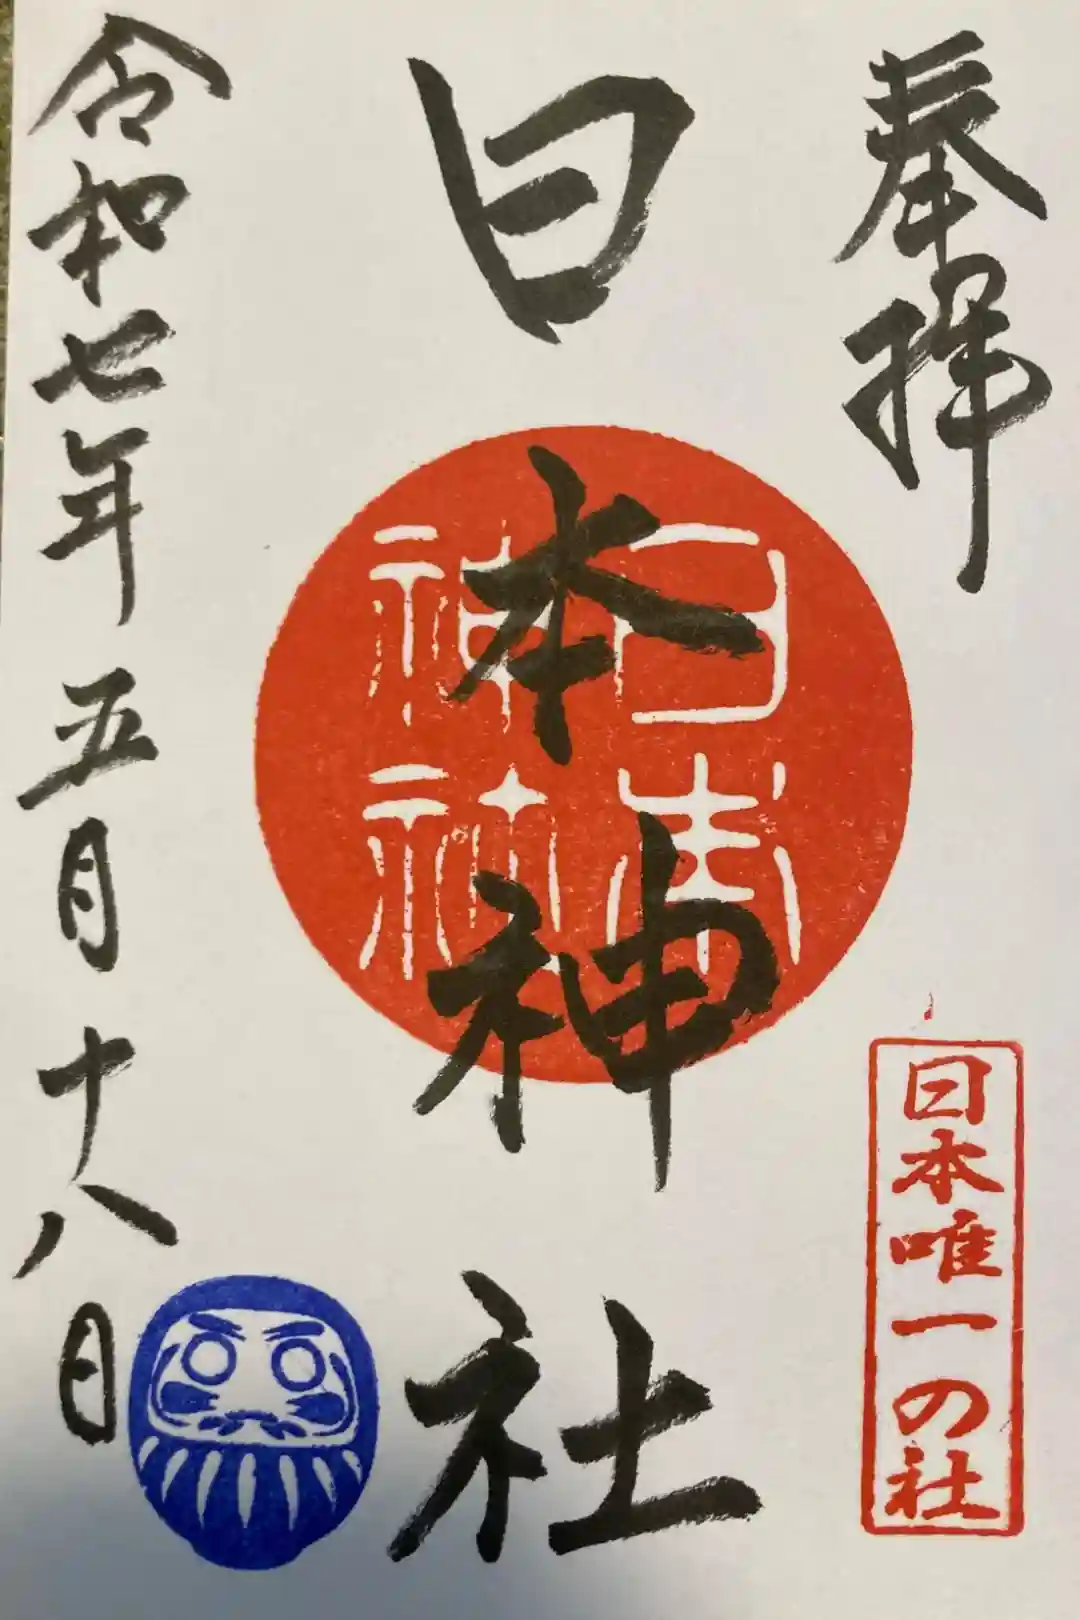 奉拝
日本唯一の社
日本神社
日本
神社
令和七年五月十八日